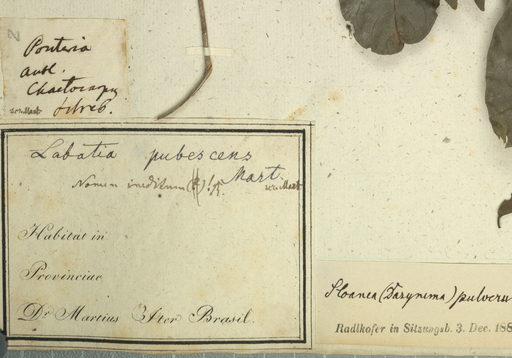 Pouteria
Aubl.
Chaetocarpus
Schreb.
v. Mart
Labatia pubescens
Mart.
Nomen ineditum
v. Mart
Habitat in
Provinciae
Dr. Martius Iter Brasil.
Sloanea (Dasynema) pulveru
Radlkofer in Sitzungsb. 3. Dec. 188